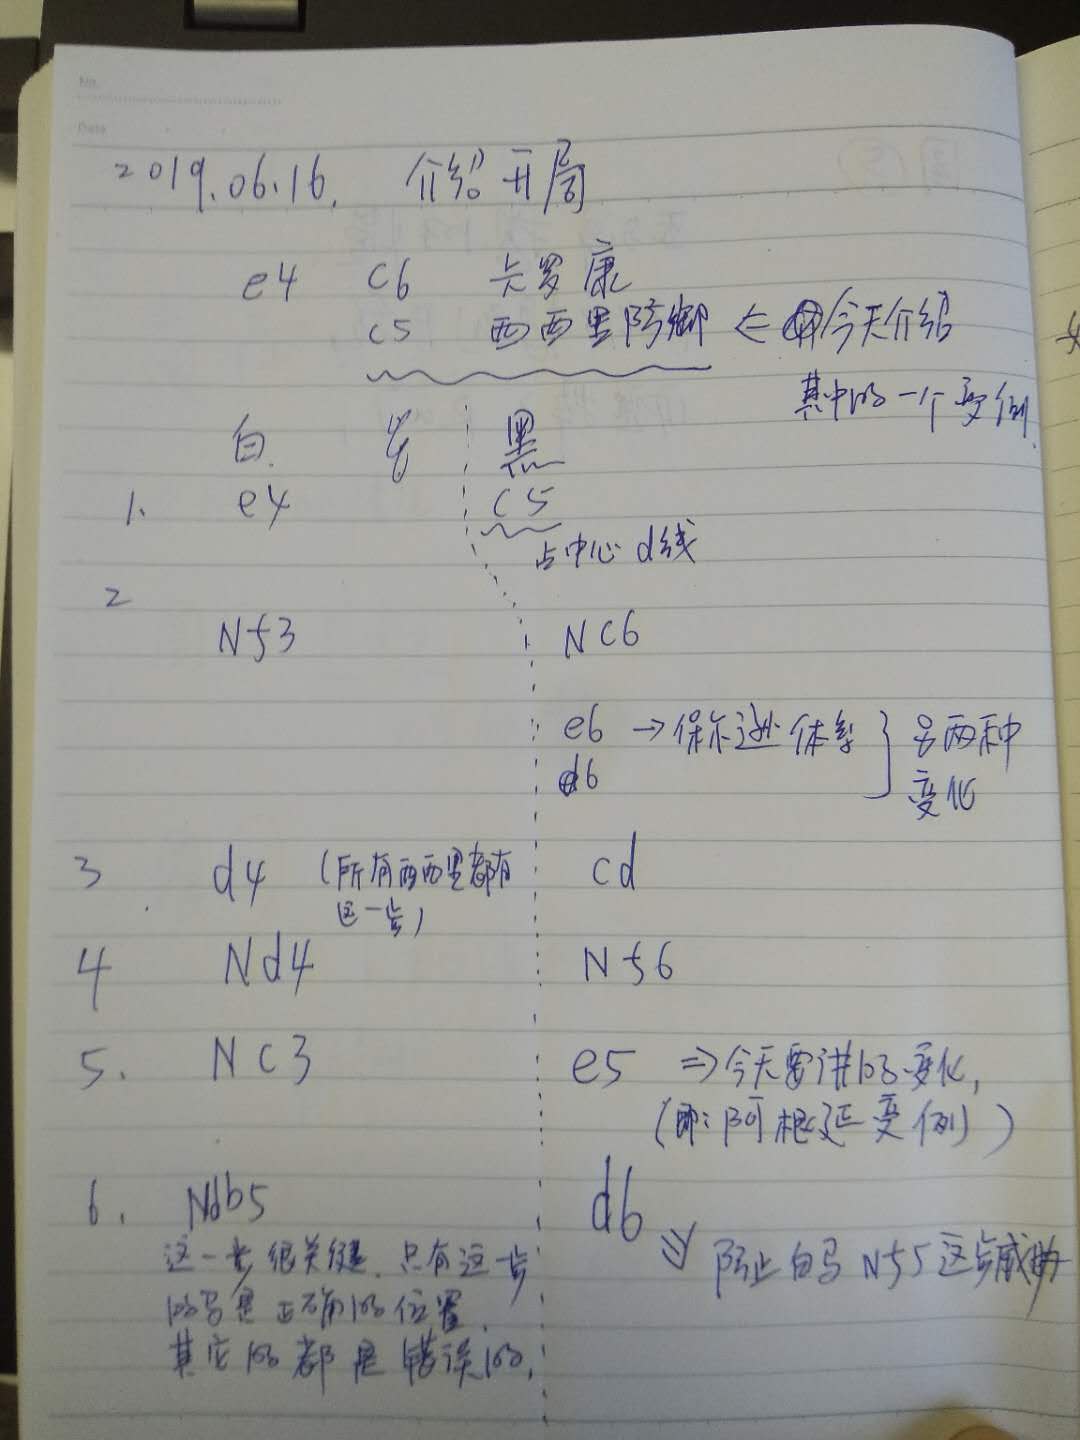 No.
Date
2019.06.16. 介绍开局
e4 c6 卡罗康
c5 西西里防御 ⇐ 今天介绍
其中的一个变例.
白. 黑
1. e4 c5
占中心 d线
2
Nf3 Nc6
e6 → 保尔逊体系 } 另两种
d6 变化
3 d4 (所有西西里都有 cd
这一步)
4 Nd4 Nf6
5. Nc3 e5 ⇒ 今天要讲的变化,
(即: 阿根廷变例)
6. Ndb5 d6
这一步很关键. 只有这步 ⇒ 防止白马 Nf5 这步威胁
的马是正确的位置.
其它的都是错误的.